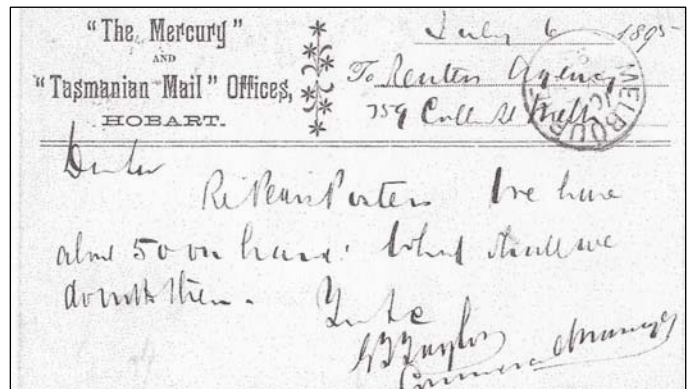 "The Mercury"
AND
"Tasmanian Mail" Offices,
HOBART.
July 6 1895
To Reuters Agency
Coll St Melb
MELBOUR
Dr Sir
Re Pears Posters We have
about 50 on hand. What shall we
do with them.
Yrs &c
Taylor
Manager